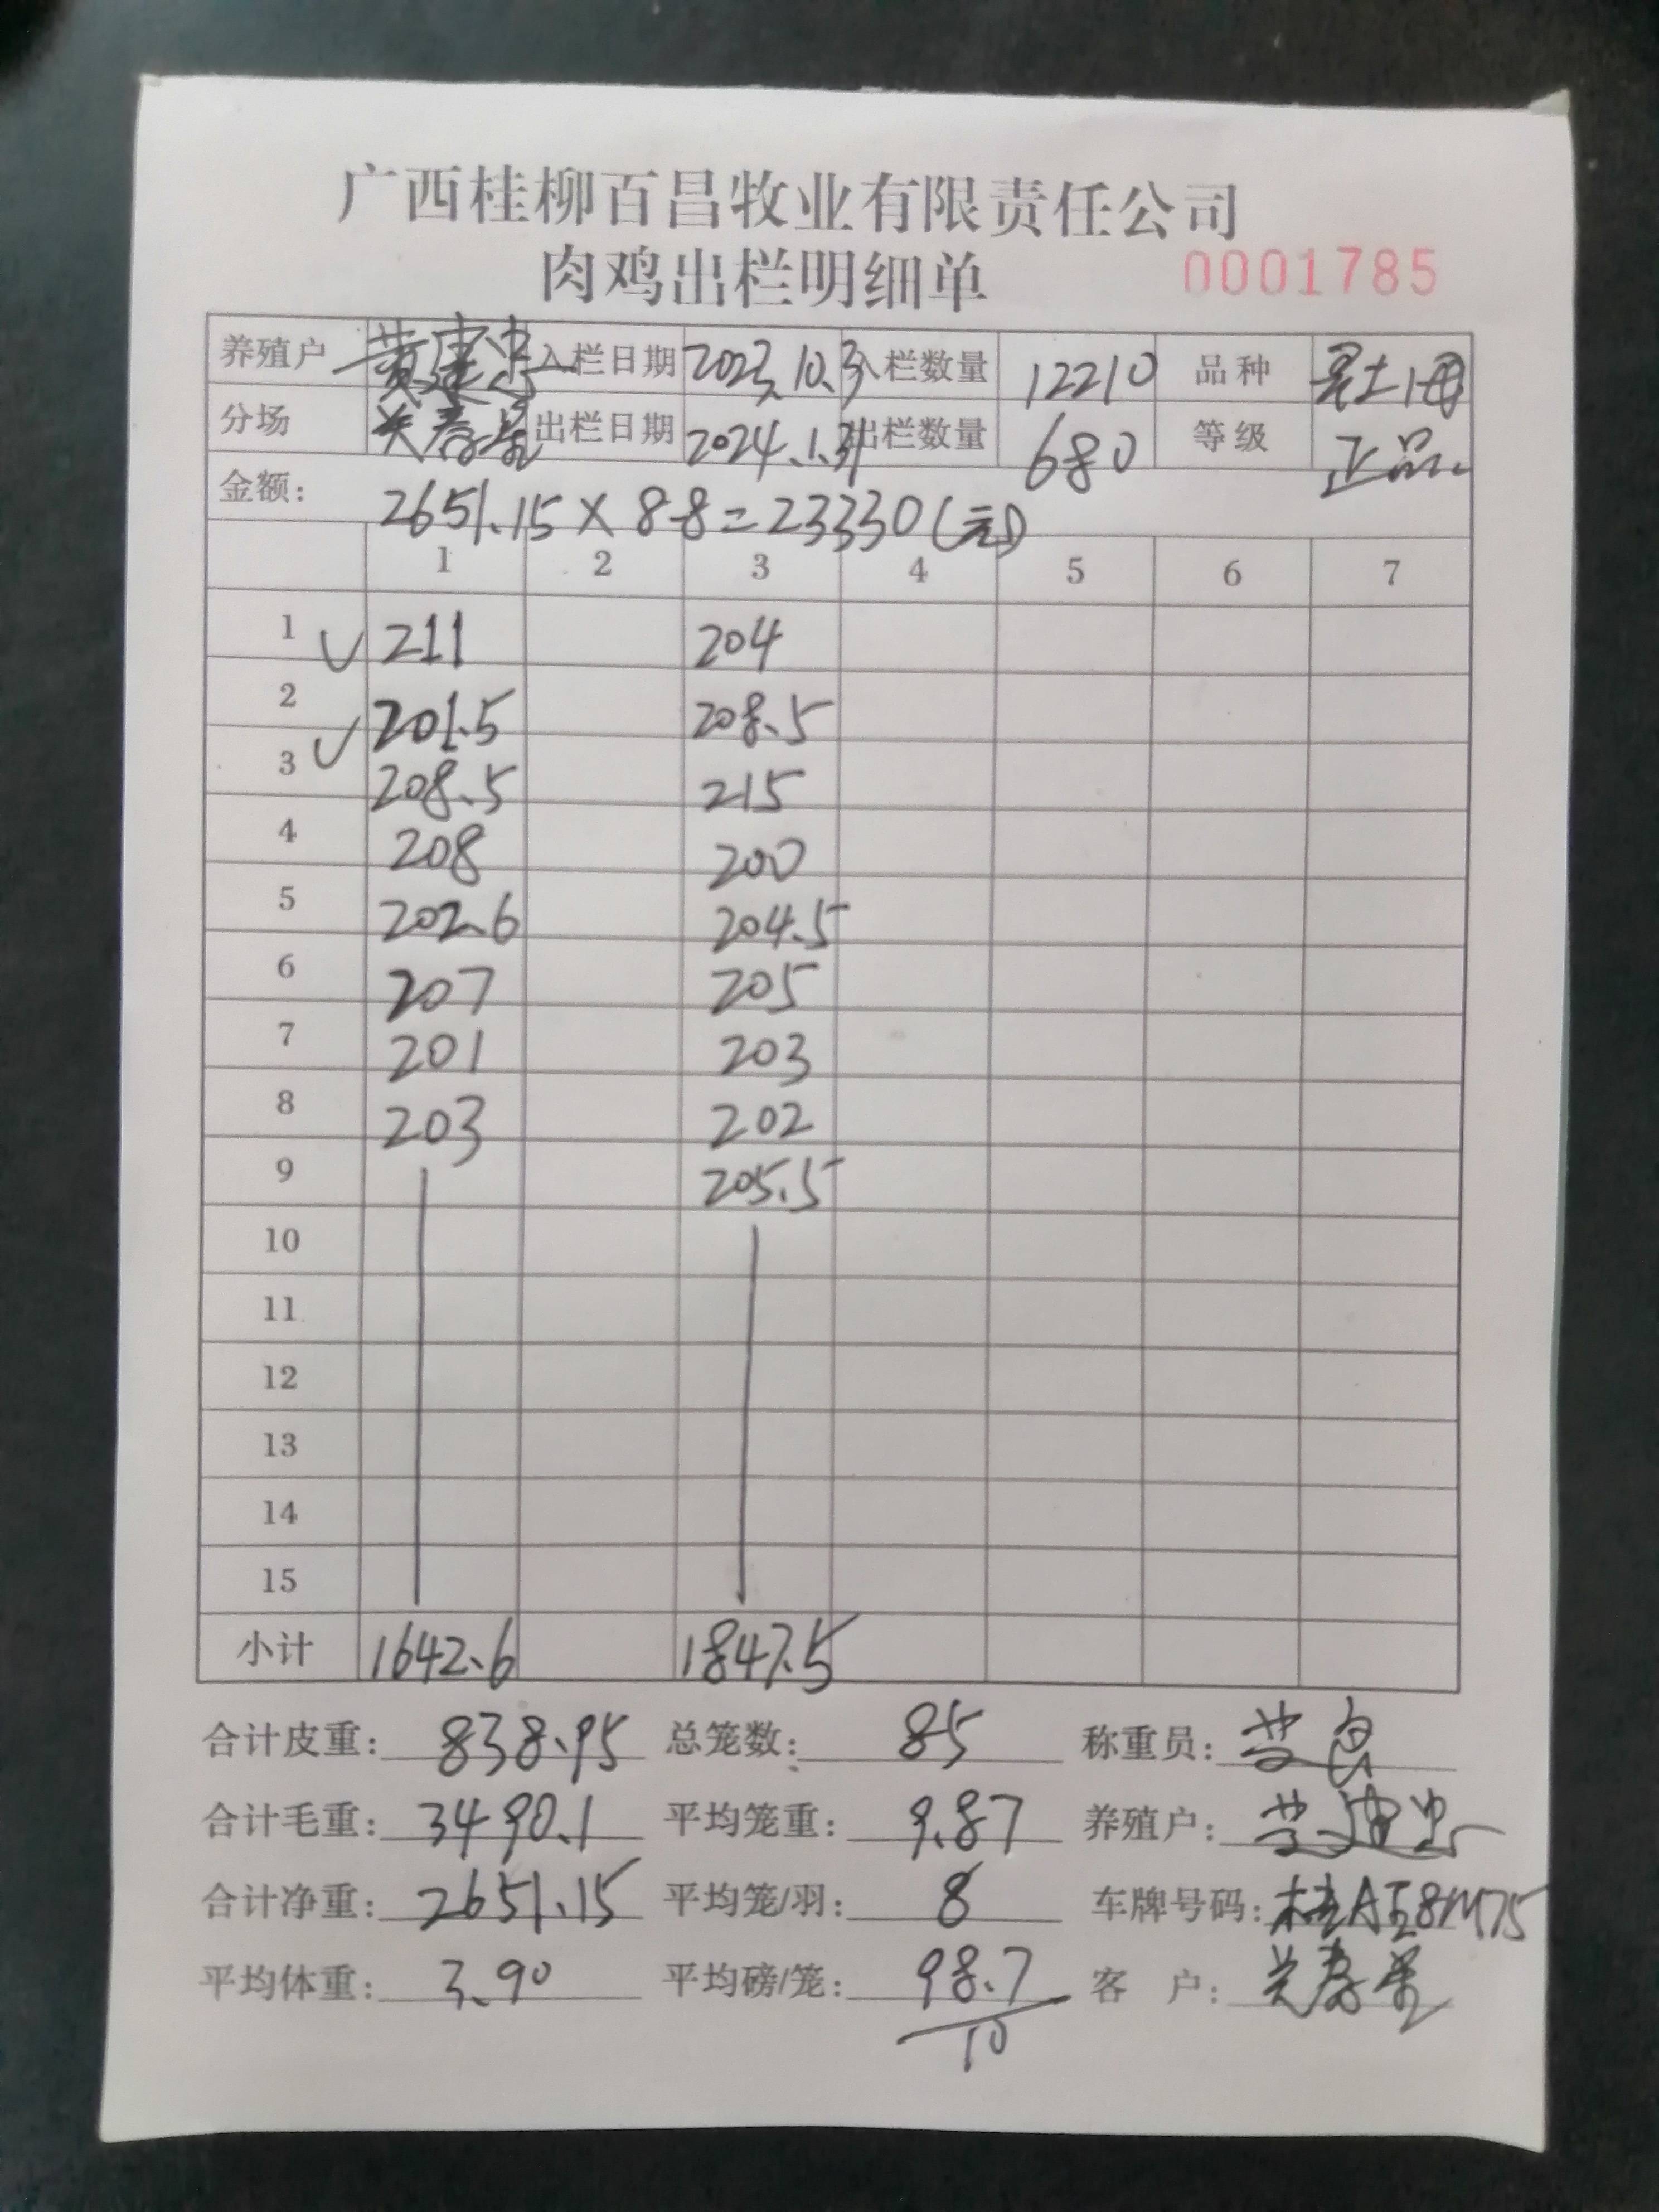 广西桂柳百昌牧业有限责任公司
肉鸡出栏明细单 0001785
养殖户 入栏日期 2023.10.3 入栏数量 12210 品种
分场 出栏日期 2024.1.31 出栏数量 680 等级 正品
金额: 2651.15 × 8.8 = 23330(元)
1 2 3 4 5 6 7
1 211 204
2 201.5 208.5
3 208.5 215
4 208 200
5 202.6 204.5
6 207 205
7 201 203
8 203 202
9 205.5
10
11
12
13
14
15
小计 1642.6 1847.5
合计皮重: 838.95 总笼数: 85 称重员:
合计毛重: 3490.1 平均笼重: 9.87 养殖户:
合计净重: 2651.15 平均笼/羽: 8 车牌号码:
平均体重: 3.90 平均磅/笼: 98.7 客 户:
10